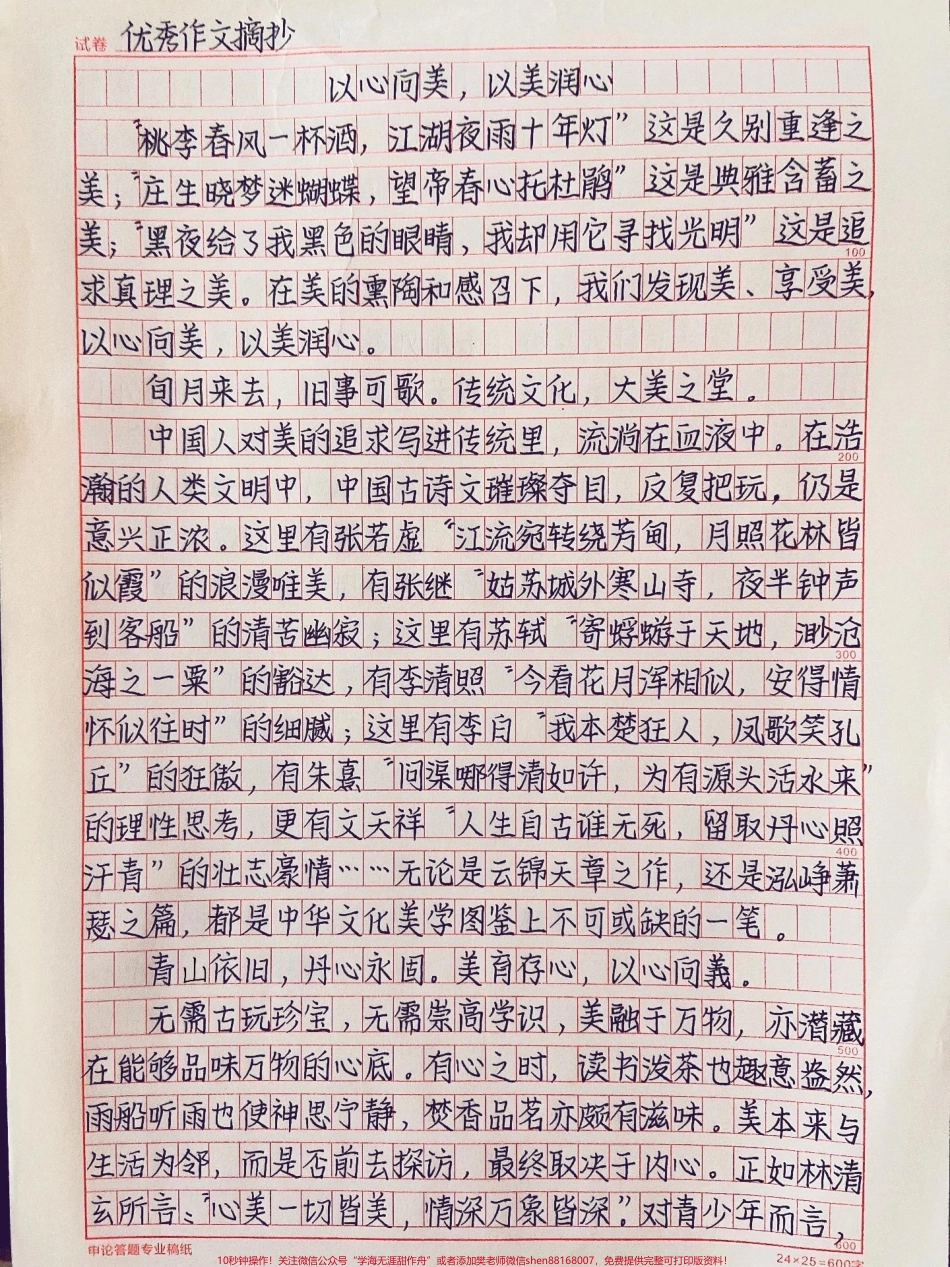 试卷 优秀作文摘抄
以心向美，以美润心
“桃李春风一杯酒，江湖夜雨十年灯”这是久别重逢之
美；“庄生晓梦迷蝴蝶，望帝春心托杜鹃”这是典雅含蓄之
美；“黑夜给了我黑色的眼睛，我却用它寻找光明”这是追
100
求真理之美。在美的熏陶和感召下，我们发现美、享受美，
以心向美，以美润心。
旬月来去，旧事可歌。传统文化，大美之堂。
中国人对美的追求写进传统里，流淌在血液中。在浩
200
瀚的人类文明中，中国古诗文璀璨夺目，反复把玩，仍是
意兴正浓。这里有张若虚“江流宛转绕芳甸，月照花林皆
似霞”的浪漫唯美，有张继“姑苏城外寒山寺，夜半钟声
到客船”的清苦幽寂；这里有苏轼“寄蜉蝣于天地，渺沧
300
海之一粟”的豁达，有李清照“今看花月浑相似，安得情
怀似往时”的细腻；这里有李白“我本楚狂人，凤歌笑孔
丘”的狂傲，有朱熹“问渠哪得清如许，为有源头活水来”
的理性思考，更有文天祥“人生自古谁无死，留取丹心照
400
汗青”的壮志豪情……无论是云锦天章之作，还是泓峥萧
瑟之篇，都是中华文化美学图鉴上不可或缺的一笔。
青山依旧，丹心永固。美育存心，以心向義。
无需古玩珍宝，无需崇高学识，美融于万物，亦潜藏
500
在能够品味万物的心底。有心之时，读书泼茶也趣意盎然，
雨船听雨也使神思宁静，焚香品茗亦颇有滋味。美本来与
生活为邻，而是否前去探访，最终取决于内心。正如林清
玄所言：“心美一切皆美，情深万象皆深”。对青少年而言，
600
申论答题专业稿纸
24×25=600字
10秒钟操作！关注微信公众号“学海无涯甜作舟”或者添加樊老师微信shen88168007，免费提供完整可打印版资料！